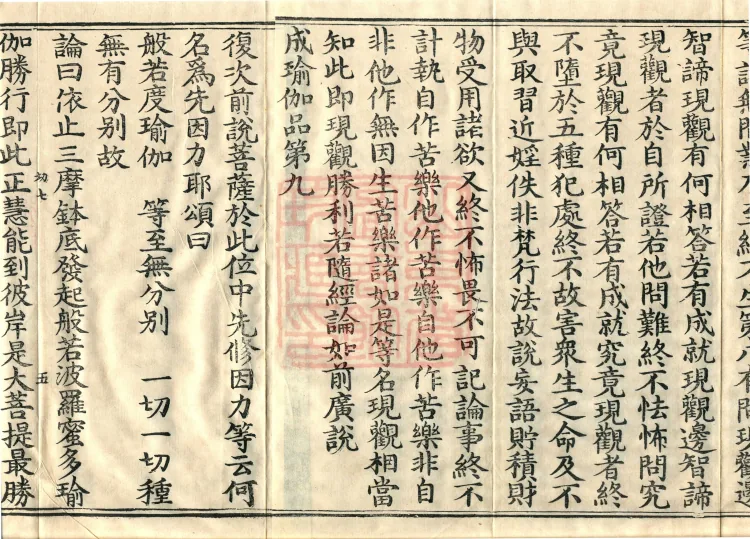 智諦現觀有何相答若有成就現觀邊智諦
現觀者於自所證若他問難終不怯怖問究
竟現觀有何相答若有成就究竟現觀者終
不墮於五種犯處終不故害衆生之命及不
與取習近婬佚非梵行法故說妄語貯積財
物受用諸欲又終不怖畏不可記論事終不
計執自作苦樂他作苦樂自他作苦樂非自
非他作無因生苦樂諸如是等名現觀相當
知此即現觀勝利若隨經論如前廣說
成瑜伽品第九
復次前說菩薩於此位中先修因力等云何
名爲先因力耶頌曰
般若度瑜伽 等至無分別 一切一切種
無有分別故
論曰依止三摩鉢底發起般若波羅蜜多瑜
切七 五
伽勝行即此正慧能到彼岸是大菩提最勝